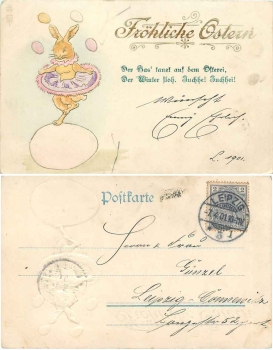 Fröhliche Ostern
Der Has' tanzt auf dem Osterei,
Der Winter floh. Juchhe! Juchhei!
wünscht
L. 1901.
Postkarte
LEIPZIG
Herrn u. Frau
Günzel
Leipzig-Connewitz